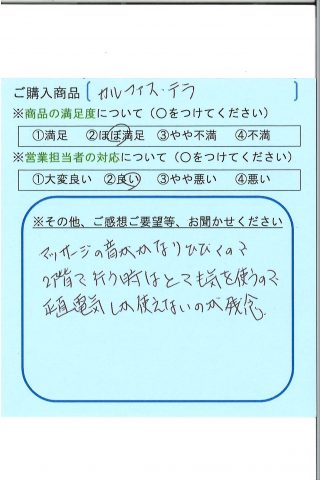 ご購入商品〔カルフィス・テラ〕
※商品の満足度について（○をつけてください）
①満足 ②ほぼ満足 ③やや不満 ④不満
※営業担当者の対応について（○をつけてください）
①大変良い ②良い ③やや悪い ④悪い
※その他、ご感想ご要望等、お聞かせください
マッサージの音がかなりひびくので
2階で行う時はとても気を使うので
正直電気しか使えないのが残念.